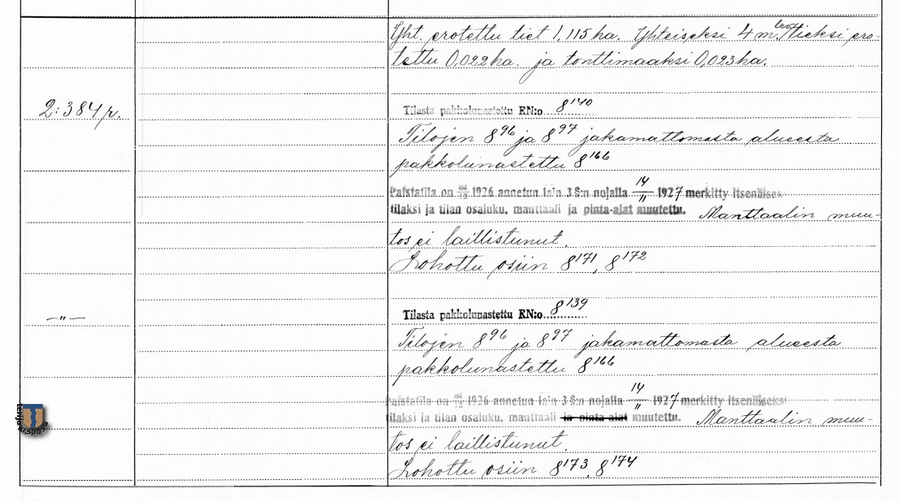 Yht. erotettu tiet 1,115 ha. Yhteiseksi 4 m. lev. tieksi ero-
tettu 0,022 ha. ja tonttimaaksi 0,023 ha.
2:384/r.
Tilasta pakkolunastettu RN:o 8 140
Tilojen 8 96 ja 8 97 jakamattomasta alueesta
pakkolunastettu 8 166
Palstatila on 1926 annetun lain 3 §:n nojalla 14/11 1927 merkitty itsenäisek-
tilaksi ja tilan osaluku, manttaali ja pinta-alat muutettu. Manttaalin muu-
tos ei laillistunut.
Lohottu osiin 8 171, 8 172
—„—
Tilasta pakkolunastettu RN:o 8 139
Tilojen 8 96 ja 8 97 jakamattomasta alueesta
pakkolunastettu 8 166
Palstatila on 1926 annetun lain 3 §:n nojalla 14/11 1927 merkitty itsenäiseksi
tilaksi ja tilan osaluku, manttaali ja pinta-alat muutettu. Manttaalin muu-
tos ei laillistunut.
Lohottu osiin 8 173, 8 174